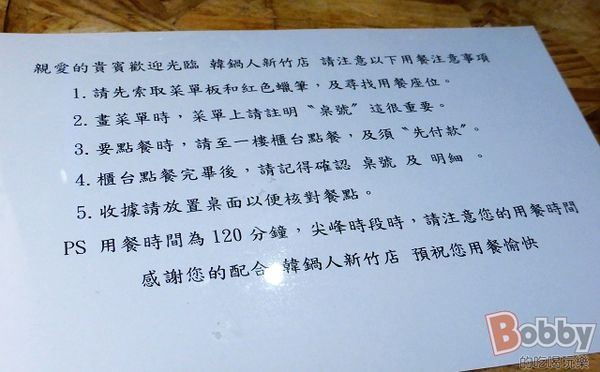 親愛的貴賓歡迎光臨 韓鍋人新竹店 請注意以下用餐注意事項
1. 請先索取菜單板和紅色蠟筆，及尋找用餐座位。
2. 畫菜單時，菜單上請註明〝桌號〞這很重要。
3. 要點餐時，請至一樓櫃台點餐，及須〝先付款〞。
4. 櫃台點餐完畢後，請記得確認 桌號 及 明細 。
5. 收據請放置桌面以便核對餐點。
PS 用餐時間為 120 分鐘，尖峰時段時，請注意您的用餐時間
感謝您的配合 韓鍋人新竹店 預祝您用餐愉快
Bobby
的吃喝玩樂